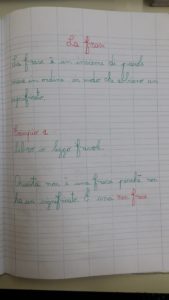 La frase
La frase è un insieme di parole
messe in ordine in modo che abbiano un
significato.
Esempio 1
libro io leggo favole.
Questa non è una frase perché non
ha un significato. È una non frase